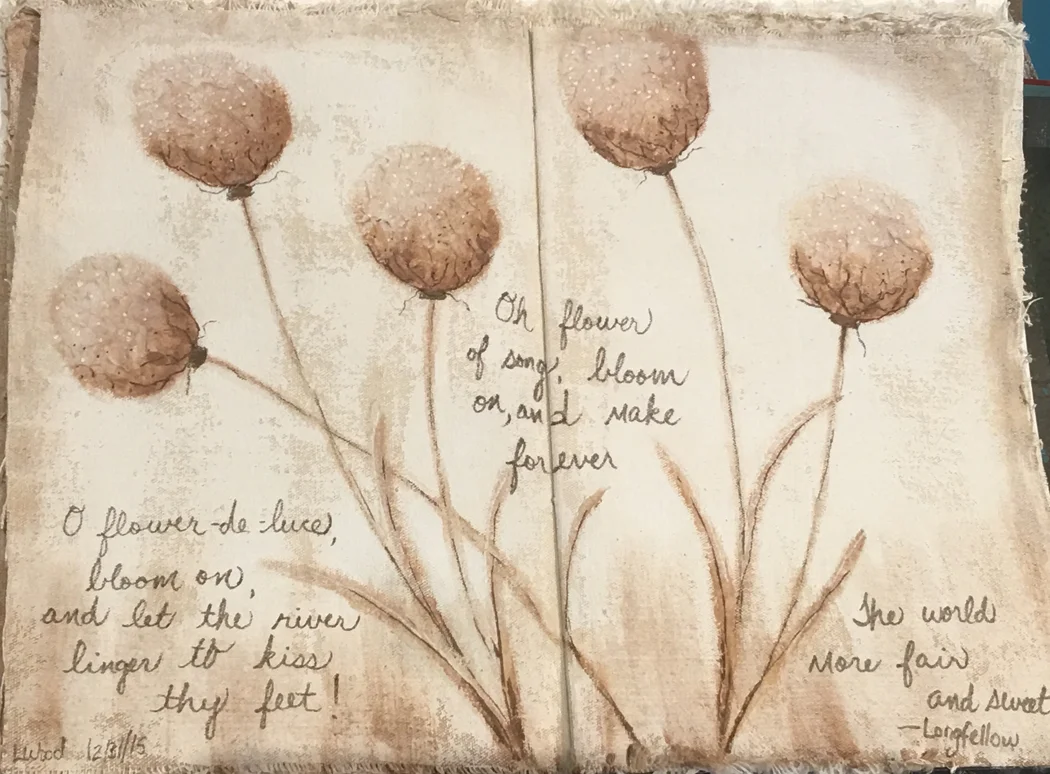 O flower-de-luce,
bloom on,
and let the river
linger to kiss
thy feet!
Oh flower
of song, bloom
on, and make
forever
The world
more fair
and sweet
—Longfellow
12/31/15